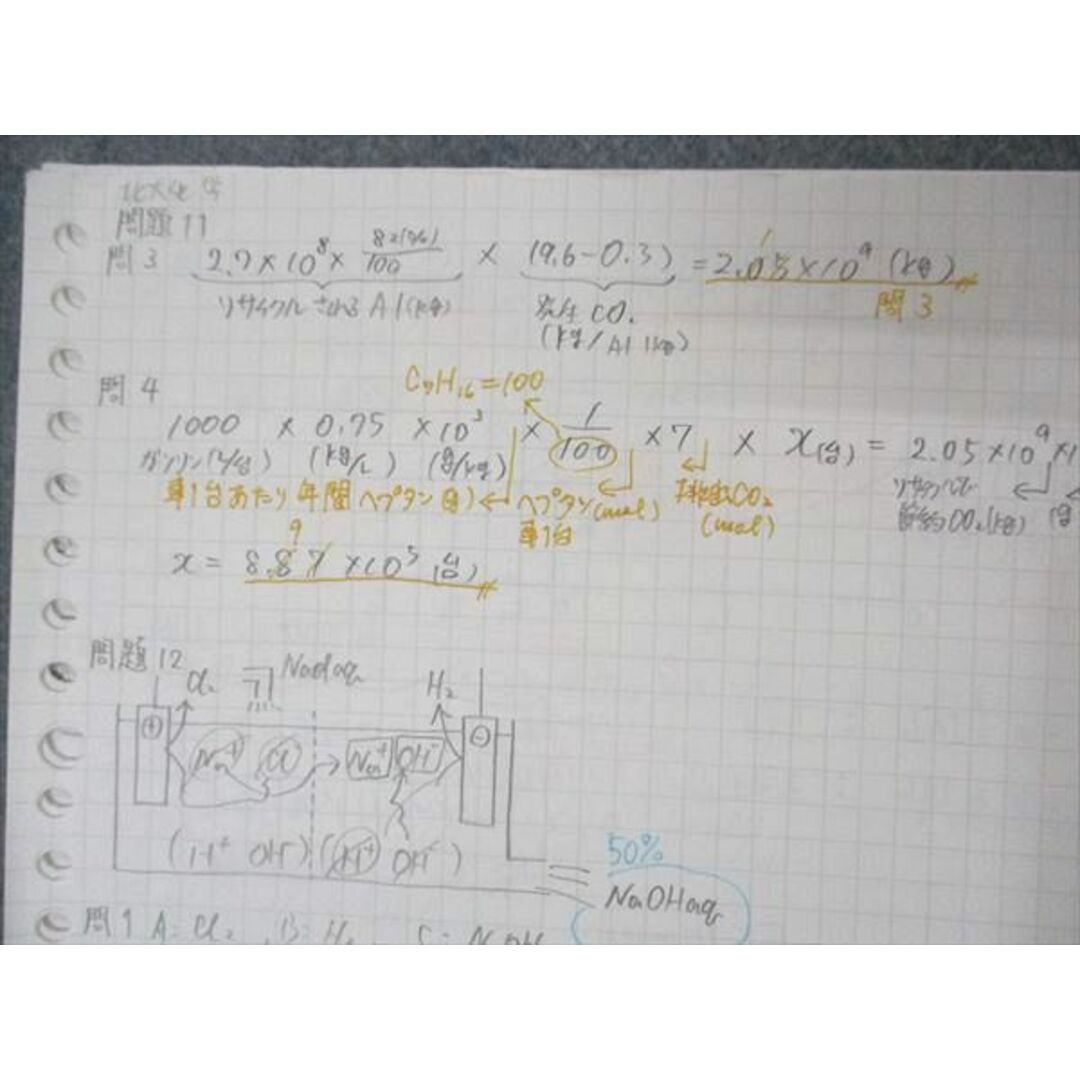 北大化学
問題11
問3 2.7×10⁸× 82(%)/100 × (9.6-0.3) =2.05×10⁹ (kg)
リサイクルされるAl(kg) 発生CO₂ 問3
(kg/Al 1kg)
問4 C₇H₁₆=100
1000 × 0.75 ×10³ × 1/100 ×7 × x(台) = 2.05×10⁹×1
ガソリン(L/台) (kg/L) (g/kg) リサイクルで
車1台あたり年間ヘプタン(g) ヘプタン(mol) 排出CO₂ 節約CO₂(kg) (g
車1台 (mol)
9
x = 8.87 ×10⁵ (台)
問題12
Cl₂ NaClaq H₂
⊕ Na⁺ Cl⁻ → Na⁺ OH⁻ ⊖
(H⁺ OH⁻) (H⁺ OH⁻)
50%
NaOHaq
問1 A: Cl₂ , B: H₂ C: NaOH